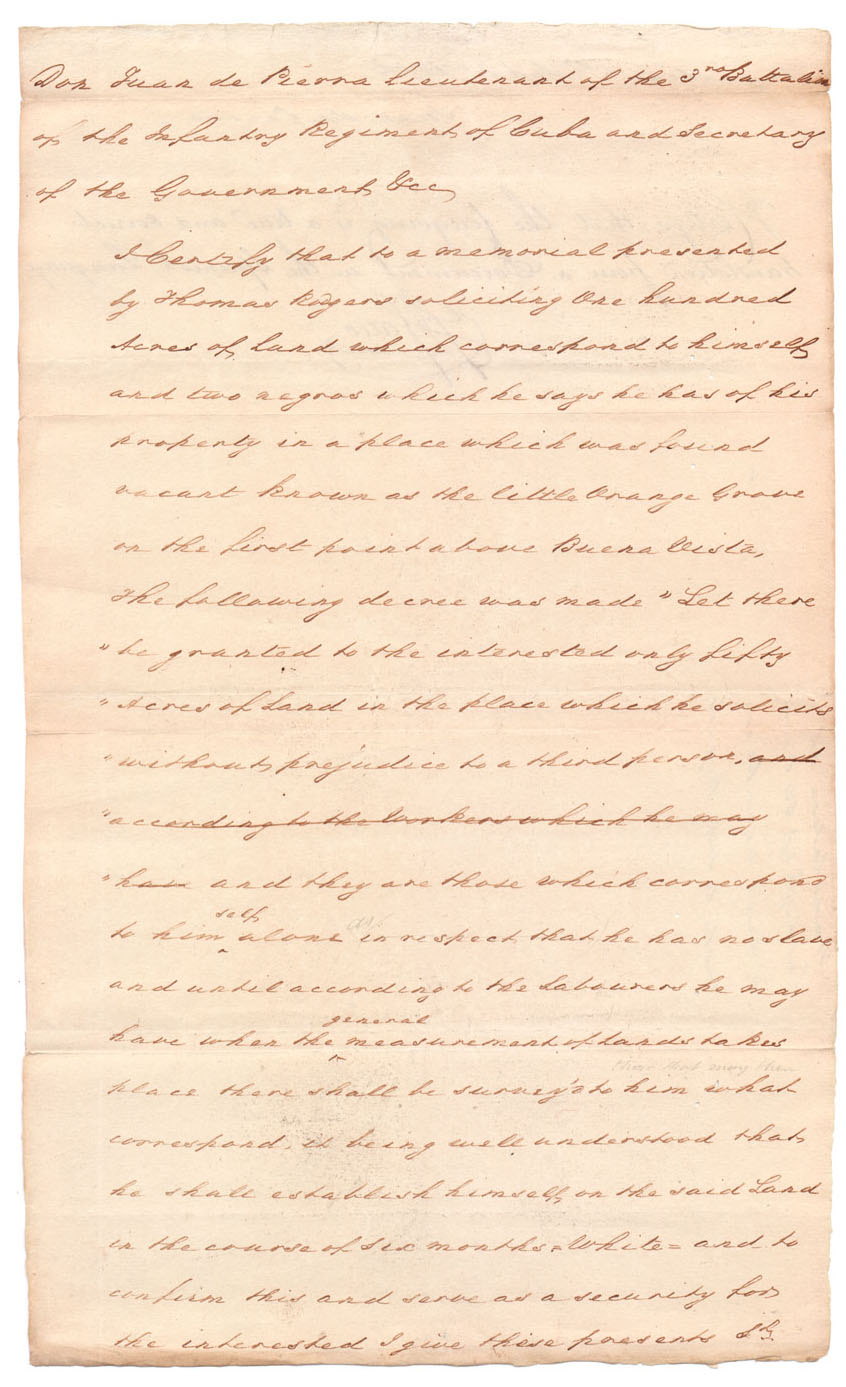 Don Juan de Pierra Lieutenant of the 3rd Battalion
of the Infantry Regiment of Cuba and Secretary
of the Government &cc
I Certify that to a memorial presented
by Thomas Rogers soliciting One hundred
Acres of Land which correspond to himself
and two negros which he says he has of his
property in a place which was found
vacant known as the little Orange Grove
on the first point above Buena Vista,
The following decree was made " Let there
" be granted to the interested only fifty
" Acres of Land in the place which he solicits
" without prejudice to a third person, and
" according to the Workers which he may
" have and they are those which correspond
self
to him alone in respect that he has no slave
and until according to the Labourers he may
general
have when the measurement of lands takes
place there shall be survey'd to him what
correspond, it being well understood that
he shall establish himself, on the said Land
in the course of six months = White = and to
confirm this and serve as a security for
the interested I give these presents